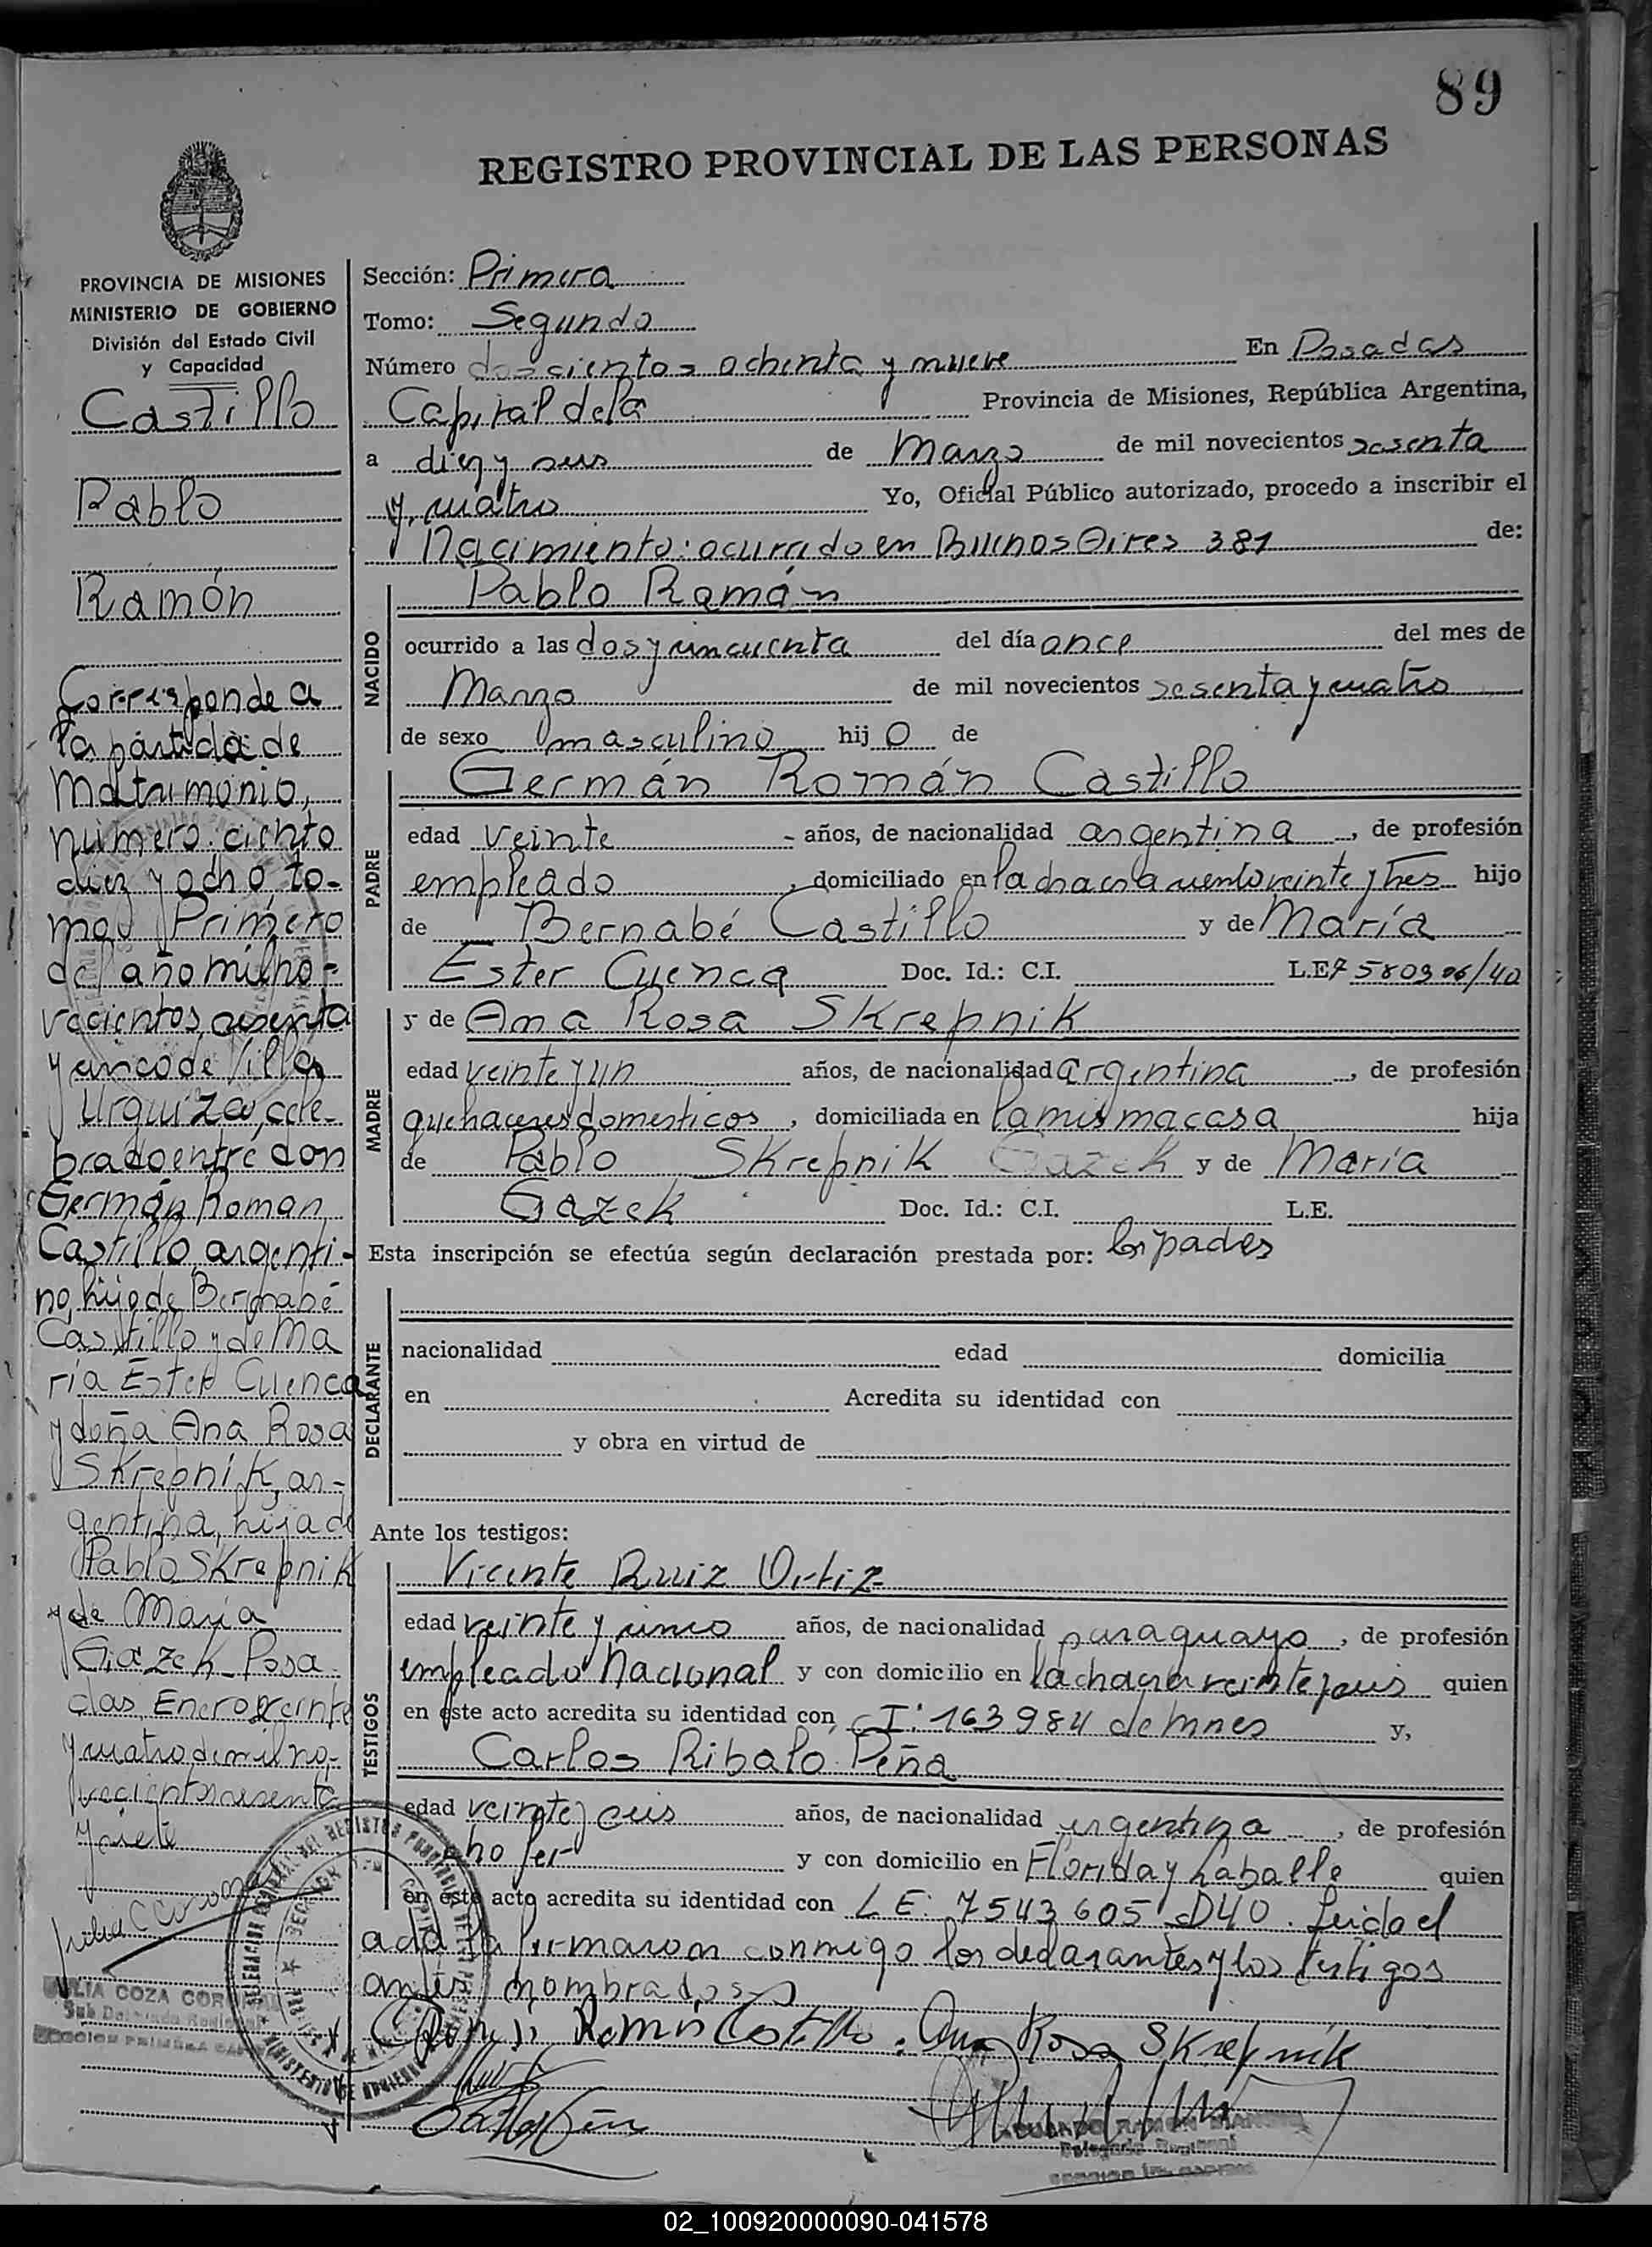 89
REGISTRO PROVINCIAL DE LAS PERSONAS
PROVINCIA DE MISIONES
MINISTERIO DE GOBIERNO
División del Estado Civil
y Capacidad
Castillo
Pablo
Ramón
Corresponde a
la partida de
Matrimonio,
número ciento
diez y ocho to-
mo Primero
del año mil no-
vecientos sesenta
y cinco de Villa
Urquiza, cele-
brado entre don
Germán Roman
Castillo argenti-
no, hijo de Bernabé
Castillo y de Ma
ría Ester Cuenca
y doña Ana Rosa
Skrepnik, ar-
gentina, hija de
Pablo Skrepnik
y de María
Gazek_ Posa
das, Enero veinte
y cuatro de mil no-
vecientos sesenta
y siete
Sección: Primera
Tomo: Segundo
Número doscientos ochenta y nueve En Posadas
Capital de la Provincia de Misiones, República Argentina,
a diez y seis de Marzo de mil novecientos sesenta
y cuatro Yo, Oficial Público autorizado, procedo a inscribir el
Nacimiento: ocurrido en Buenos Aires 381 de:
NACIDO
Pablo Ramón
ocurrido a las dos y cincuenta del día once del mes de
Marzo de mil novecientos sesenta y cuatro
de sexo masculino hij o de
PADRE
Germán Román Castillo
edad veinte - años, de nacionalidad argentina, de profesión
empleado, domiciliado en la chacra ciento veinte y tres hijo
de Bernabé Castillo y de María
Ester Cuenca Doc. Id.: C.I. L.E.
MADRE
y de Ana Rosa Skrepnik
edad veinte y un años, de nacionalidad argentina, de profesión
quehaceres domesticos, domiciliada en la misma casa hija
de Pablo Skrepnik Gazek y de María
Gazek Doc. Id.: C.I. L.E.
Esta inscripción se efectúa según declaración prestada por: los padres
DECLARANTE
nacionalidad edad domicilia
en Acredita su identidad con
y obra en virtud de
Ante los testigos:
TESTIGOS
Vicente Ruiz Ortiz
edad veinte y cinco años, de nacionalidad paraguaya, de profesión
empleado Nacional y con domicilio en la chacra veinte y seis quien
en este acto acredita su identidad con C I: 163984 de Mnes y,
Carlos Ribalo Peña
edad veinte y seis años, de nacionalidad argentina, de profesión
chofer y con domicilio en Florida y Laballe quien
en este acto acredita su identidad con L E: 7543605 D40. Leida el
acta la firmaron conmigo los declarantes y los testigos
antes nombrados
Germán Román Castillo. Ana Rosa Skrepnik
JULIA COZA
02_100920000090-041578